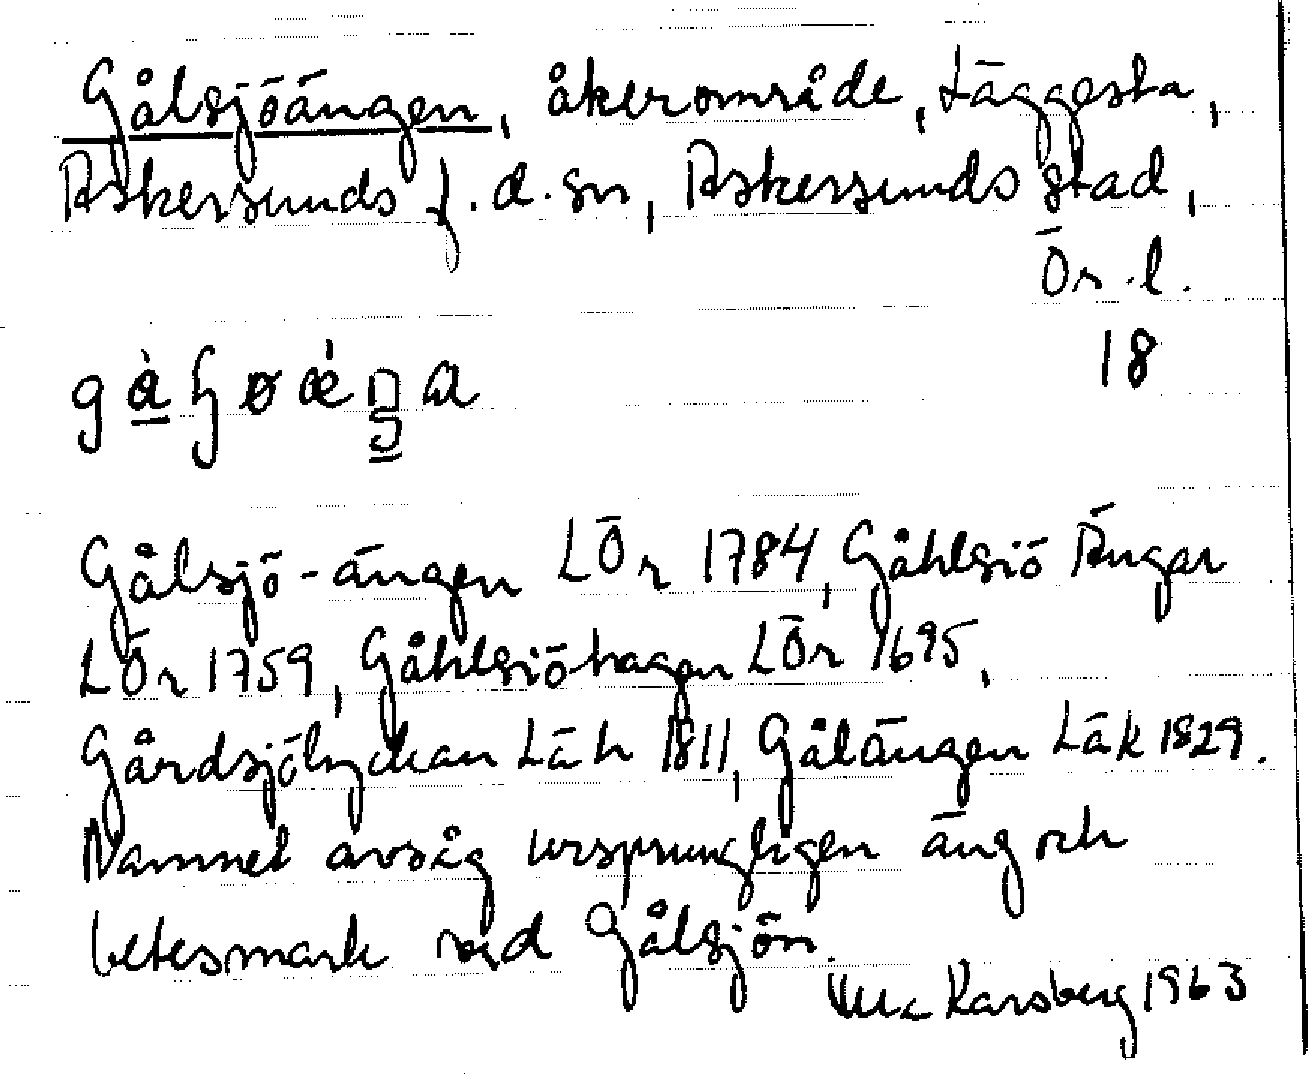 Gålsjöängen, åkerområde, Läggesta,
Askersunds f.d.sn, Askersunds stad,
Ör.l.
18
Gålsjö-ängen LÖr 1784, Gåhlsiö Ängar
LÖr 1759, Gåhlsiöhagen LÖr 1695,
Gårdsjölyckan Läh 1811, Gålängen Läk 1829.
Namnet avsåg ursprungligen äng och
betesmark vid Gålsjön.
Karsberg 1963